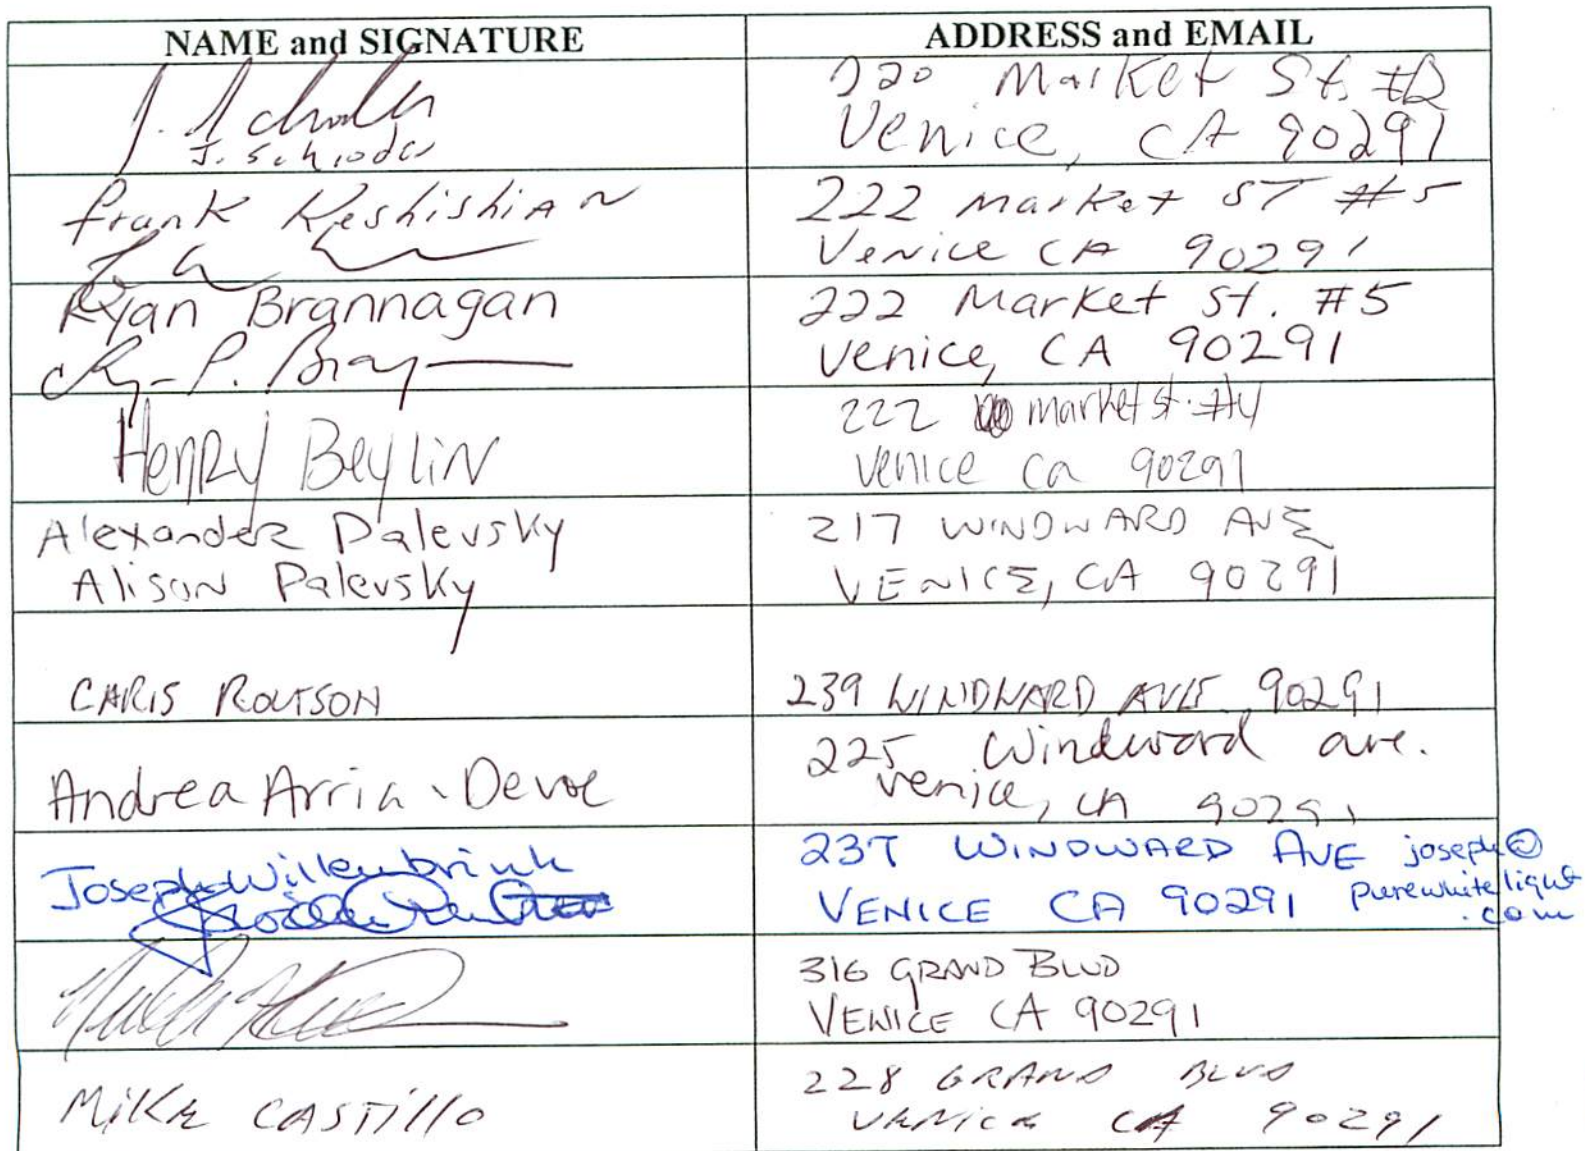 NAME and SIGNATURE
ADDRESS and EMAIL
J. Schroder
Market St.
Venice, CA 90291
frank KeshishiAn
222 Market ST #5
Venice CA 90291
Ryan Brannagan
222 Market St. #5
Venice, CA 90291
HenRy BeyLiN
222 market st. #4
Venice Ca 90291
Alexander Palevsky
Alison Palevsky
217 WINDWARD AVE
VENICE, CA 90291
CHRIS ROUTSON
239 WINDWARD AVE 90291
Andrea Arria-Devoe
225 Windward ave.
venice, CA 90291
Joseph Willenbrink
237 WINDWARD AVE joseph@
VENICE CA 90291 purewhitelight
.com
316 GRAND BLVD
VENICE CA 90291
MiKE CASTillo
228 GRAND BLVD
VENICE CA 90291